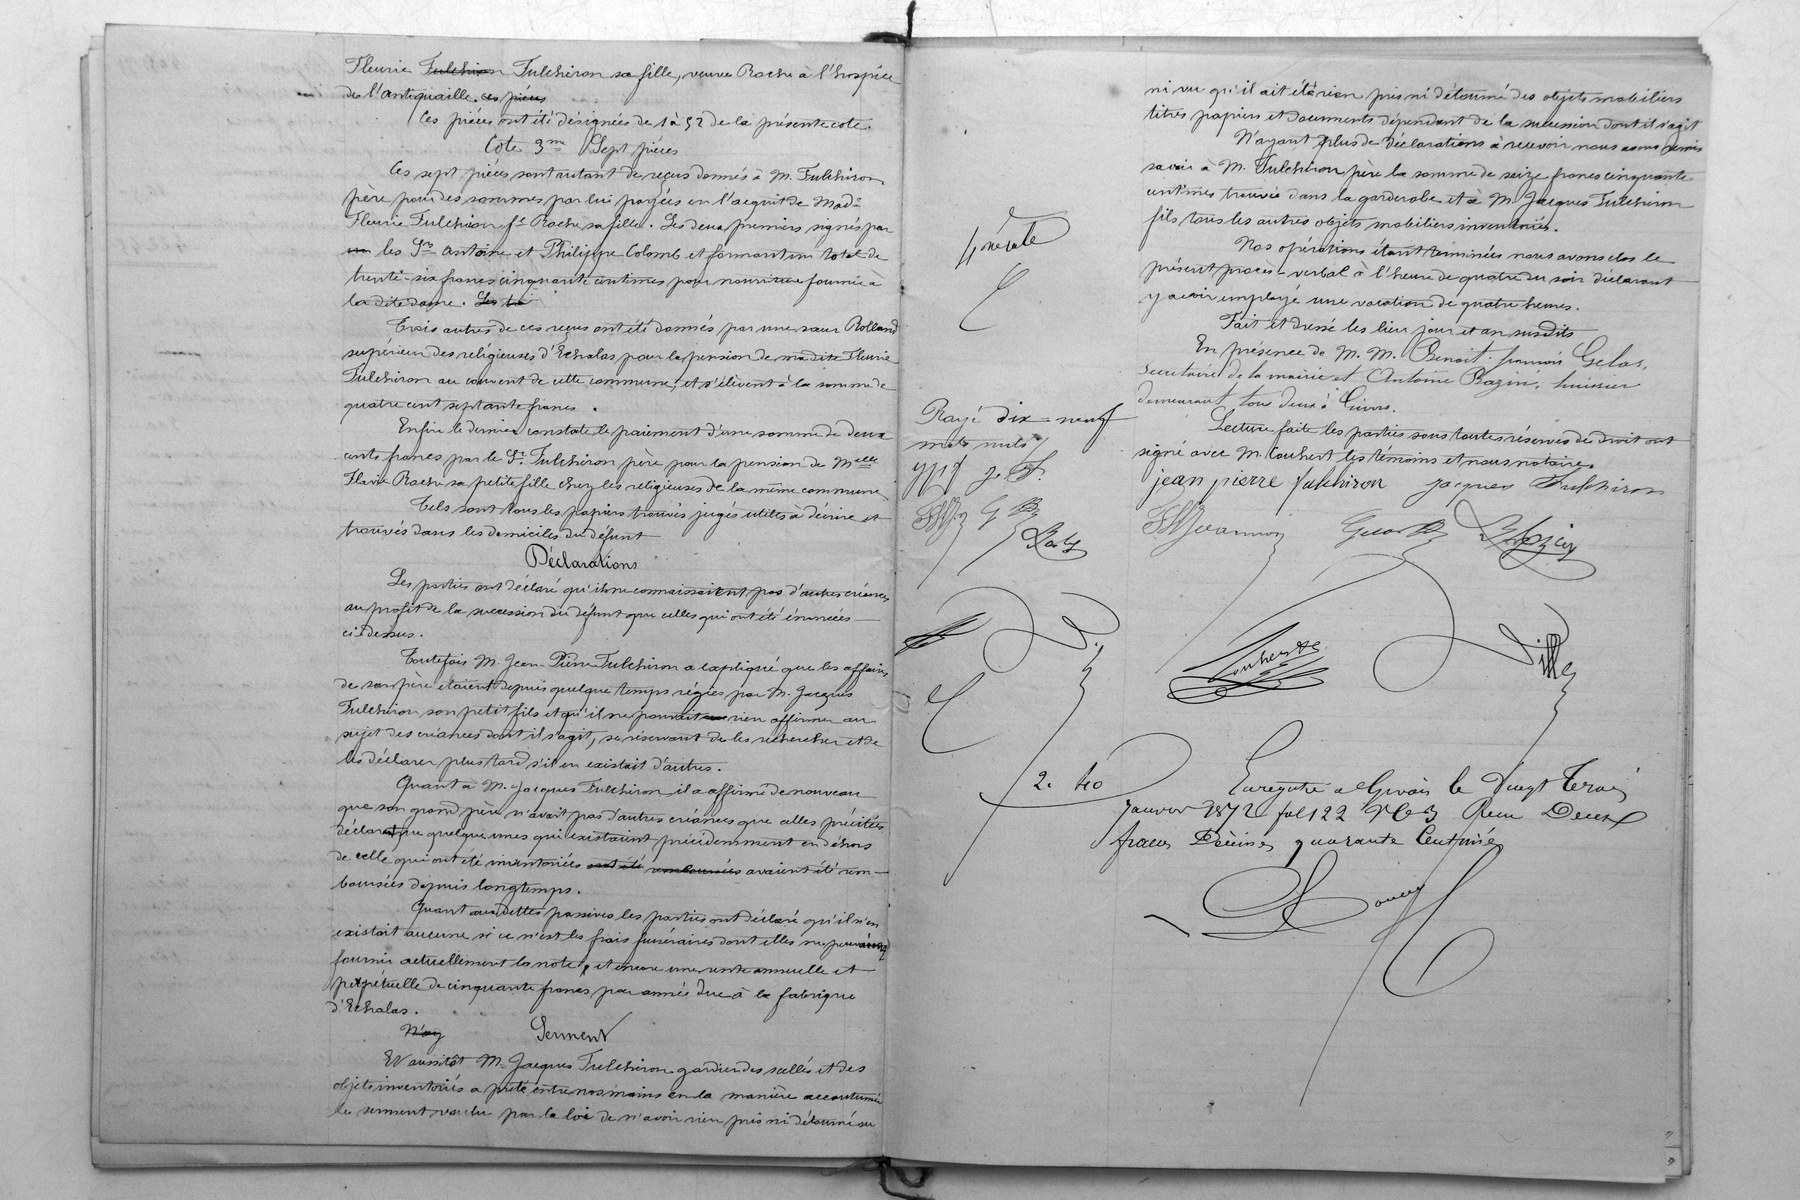 Fleurie Fulchiron Fulchiron sa fille, veuve Roche à l'hospice
de l'antiquaille. ces pièces
Ces pièces ont été désignées de 1 à 52 de la présente cote.
Cote 3me Sept pièces
Ces sept pièces sont autant de reçus donnés à M. Fulchiron
père pour des sommes par lui payées en l'acquit de Made
Fleurie Fulchiron fe Roche sa fille. Les deux premiers signés par
les Srs Antoine et Philippe Colomb et formant un total de
trente-six francs cinquante centimes pour nourriture fournie à
la dite dame. Les
Trois autres de ces reçus ont été donnés par une sœur Rolland
supérieur des religieuses d'Echalas pour la pension de madite Fleurie
Fulchiron au couvent de cette commune, et s'élèvent à la somme de
quatre cent septante francs.
Enfin le dernier constate le paiement d'une somme de deux
cents francs par le Sr. Fulchiron père pour la pension de Melle
Flavie Roche sa petite fille chez les religieuses de la même commune
Tels sont tous les papiers trouvés jugés utiles à décrire et
trouvés dans les domiciles du défunt
Déclarations
Les parties ont déclaré qu'ils ne connaissaient pas d'autres créances
au profit de la succession du défunt que celles qui ont été énoncées
ci-dessus.
Toutefois M. Jean-Pierre Fulchiron a expliqué que les affaires
de son père étaient depuis quelque temps régies par M. Jacques
Fulchiron son petit fils et qu'il ne pouvait rien affirmer au
sujet des créances dont il s'agit, se réservant de les rechercher et de
les déclarer plus tard s'il en existait d'autres.
Quant à M. Jacques Fulchiron il a affirmé de nouveau
que son grand père n'avait pas d'autres créances que celles précitées
déclarant que quelques unes qui existaient précédemment en dehors
de celle qui ont été inventoriées ont été remboursées avaient été rem-
boursées depuis longtemps.
Quant aux dettes passives les parties ont déclaré qu'il n'en
existait aucune si ce n'est les frais funéraires dont elles ne peuvent
fournir actuellement la note, et encore une rente annuelle et
perpétuelle de cinquante francs par année due à la fabrique
d'Echalas.
N'ay Serment
Et aussitôt M. Jacques Fulchiron gardien des scellés et des
objets inventoriés a prêté entre nos mains en la manière accoutumée
le serment voulu par la loi de n'avoir rien pris ni détourné su
ni vu qu'il ait été rien pris ni détourné des objets mobiliers
titres papiers et documents dépendant de la succession dont il s'agit
N'ayant plus de déclarations à recevoir nous avons remis
savoir à M. Fulchiron père la somme de seize francs cinquante
centimes trouvée dans la garderobe et à M. Jacques Fulchiron
fils tous les autres objets mobiliers inventoriés.
Nos opérations étant terminées nous avons clos le
présent procès-verbal à l'heure de quatre du soir déclarant
y avoir employé une vacation de quatre heures.
Fait et dressé les lieu jour et an susdits
En présence de M. M. Benoit-françois Gelas,
secretaire de la mairie et Antoine Bazin, huissier
demeurant tous deux à Givors.
Lecture faite les parties sous toutes réserves de droit ont
signé avec M. Couhert les témoins et nous notaire.
jean pierre fulchiron Jacques Fulchiron
Rayé dix-neuf
mots nuls
J. F.
Couhert
Ville
2. 40
Enregistré à Givors le vingt trois
Janvier 1872 fol 122 Vo C 3 Reçu Deux
francs Décimes quarante Centimes